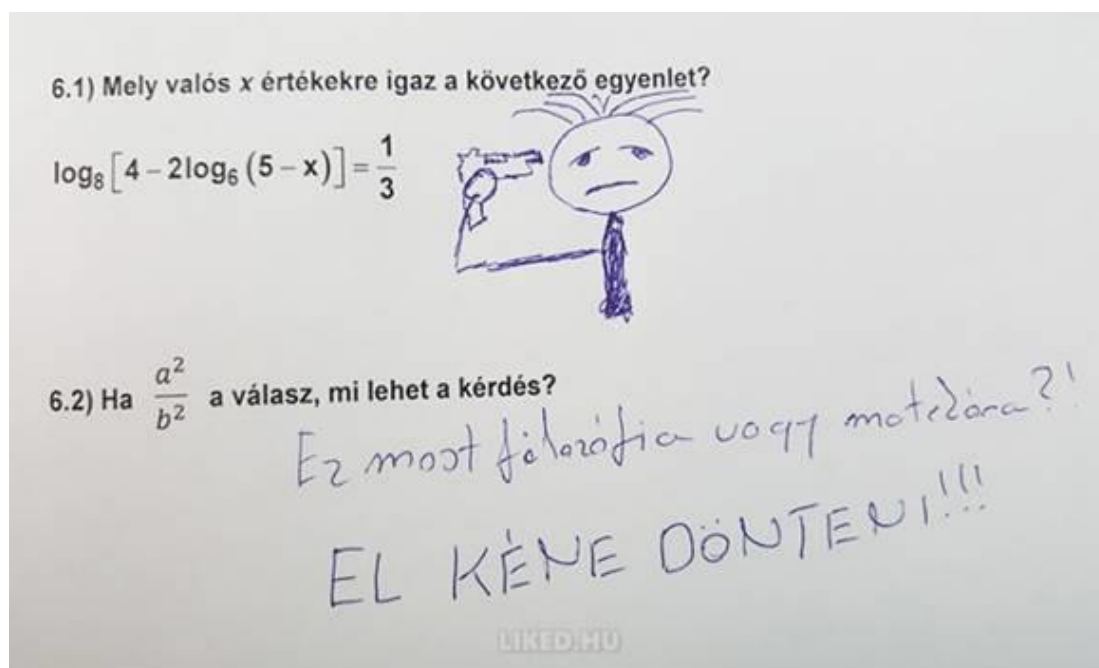 6.1) Mely valós x értékekre igaz a következő egyenlet?
log₈[4 – 2log₆(5 – x)] = 1/3
6.2) Ha a²/b² a válasz, mi lehet a kérdés?
Ez most filozófia vagy matekóra?!
EL KÉNE DÖNTENI!!!
LIKED.HU